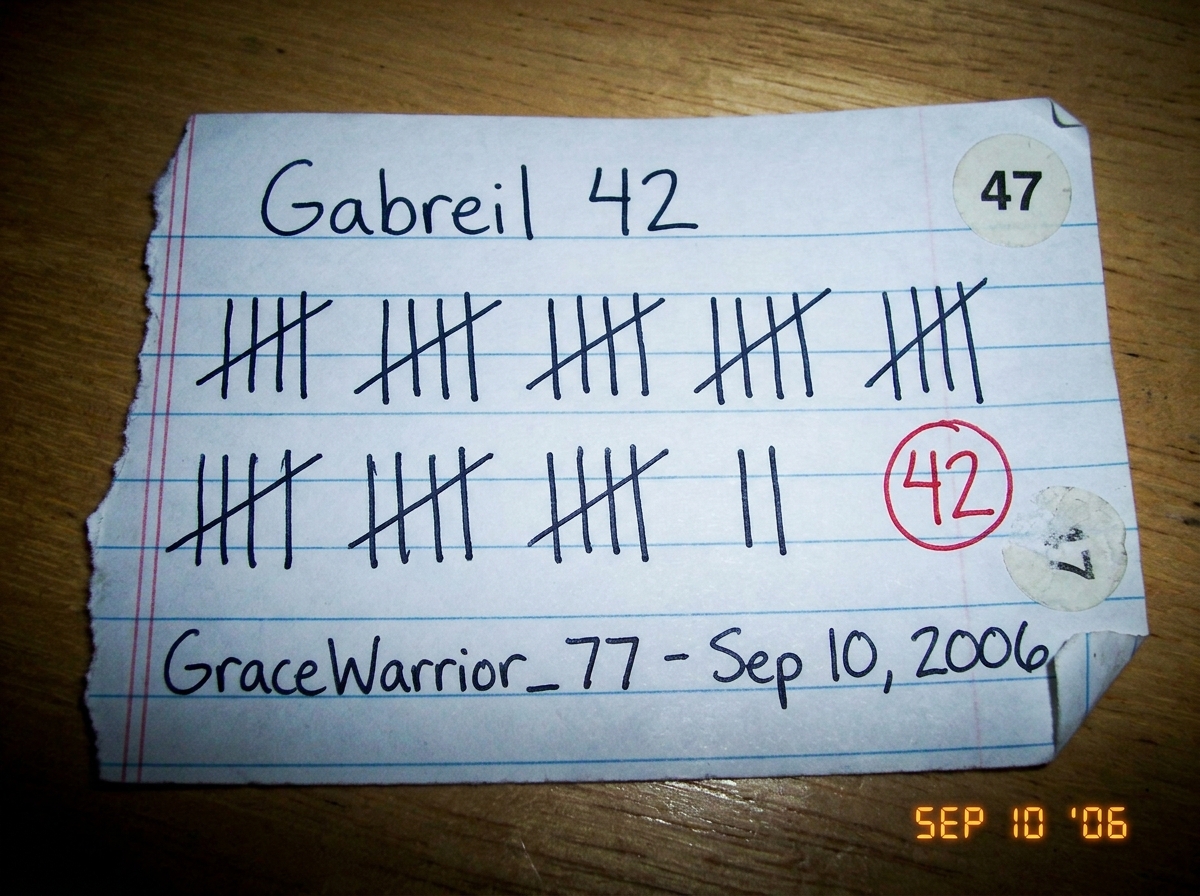 Gabreil 42
47
42
47
GraceWarrior_77 - Sep 10, 2006
SEP 10 '06